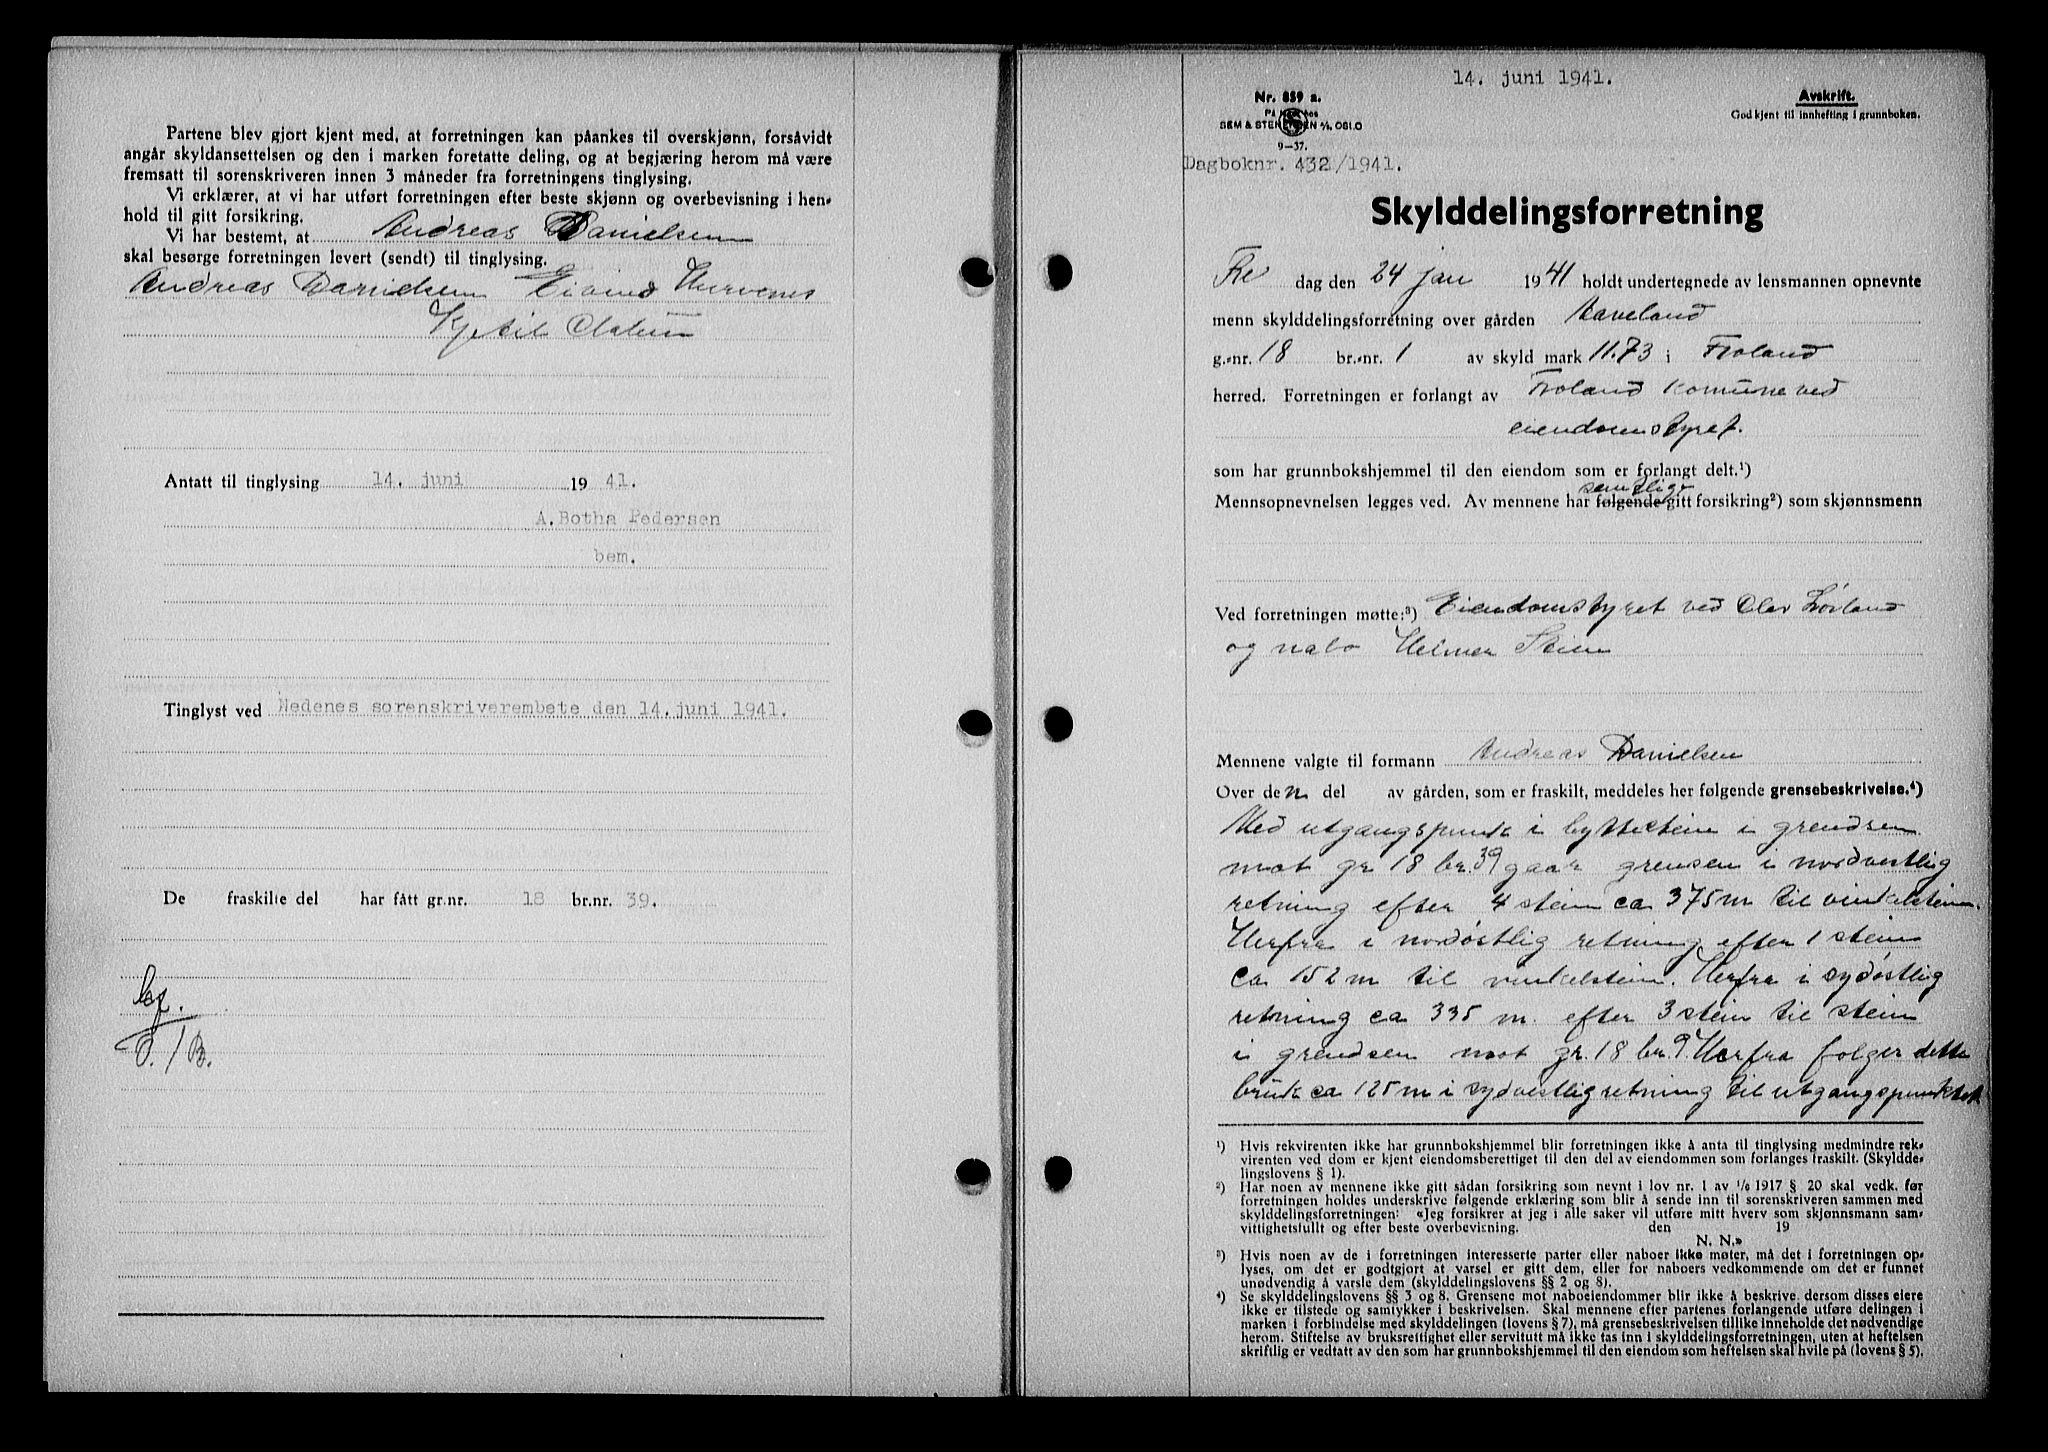 Partene blev gjort kjent med, at forretningen kan påankes til overskjønn, forsåvidt
angår skyldansettelsen og den i marken foretatte deling, og at begjæring herom må være
fremsatt til sorenskriveren innen 3 måneder fra forretningens tinglysing.
Vi erklærer, at vi har utført forretningen efter beste skjønn og overbevisning i hen-
hold til gitt forsikring.
Vi har bestemt, at Andreas Danielsen
skal besørge forretningen levert (sendt) til tinglysing.
Andreas Danielsen Eivind
Kjetil
Antatt til tinglysing 14. juni 1941.
A. Botha Pedersen
bem.
Tinglyst ved Nedenes sorenskriverembete den 14. juni 1941.
De fraskilte del har fått gr.nr. 18 br.nr. 39.
14. juni 1941.
Nr. 859 a.
Avskrift.
God kjent til innhefting i grunnboken.
SEM & STENERSEN A/S, OSLO
9-37.
Dagboknr. 432/1941.
Skylddelingsforretning
Fre dag den 24 jan 1941 holdt undertegnede av lensmannen opnevnte
menn skylddelingsforretning over gården Aaveland
g.-nr. 18 br.-nr. 1 av skyld mark 11.73 i Froland
herred. Forretningen er forlangt av Froland Komune ved
eiendomstyret.
som har grunnbokshjemmel til den eiendom som er forlangt delt.¹)
samtlige
Mennsopnevnelsen legges ved. Av mennene har følgende gitt forsikring²) som skjønnsmenn
Ved forretningen møtte:³) Eiendomstyret ved Olav Lørland
og nabo Helmer Stein
Mennene valgte til formann Andreas Danielsen
Over den del av gården, som er fraskilt, meddeles her følgende grensebeskrivelse.⁴)
Med utgangspunkt i byttestein i grendsen
mot gr 18 br. 39 gaar grensen i nordvestlig
retning efter 4 stein ca 375 m til vinkelstein.
Herfra i nordøstlig retning efter 1 stein
ca 152 m til vinkelstein. Herfra i sydøstlig
retning ca 335 m. efter 3 stein til stein
i grendsen mot gr. 18 br. 9. Herfra følger dette
bruk ca 125 m i sydvestlig retning til utgangspunktet
¹) Hvis rekvirenten ikke har grunnbokshjemmel blir forretningen ikke å anta til tinglysing medmindre rek-
virenten ved dom er kjent eiendomsberettiget til den del av eiendommen som forlanges fraskilt. (Skyldde-
lingslovens § 1).
²) Har noen av mennene ikke gitt sådan forsikring som nevnt i lov nr. 1 av 1/6 1917 § 20 skal vedk. før
forretningen holdes underskrive følgende erklæring som blir å sende inn til sorenskriveren sammen med
skylddelingsforretningen: «Jeg forsikrer at jeg i alle saker vil utføre mitt hverv som skjønnsmann sam-
vittighetsfullt og efter beste overbevisning. den 19
N. N.»
³) Hvis noen av de i forretningen interesserte parter eller naboer ikke møter, må det i forretningen op-
lyses, om det er godtgjort at varsel er gitt dem, eller for naboers vedkommende om det er funnet
unødvendig å varsle dem (skylddelingslovens §§ 2 og 8).
⁴) Se skylddelingslovens §§ 3 og 8. Grensene mot naboeiendommer blir ikke å beskrive, dersom disses eiere
ikke er tilstede og samtykker i beskrivelsen. Skal mennene efter partenes forlangende utføre delingen i
marken i forbindelse med skylddelingen (lovens § 7), må grensebeskrivelsen tillike inneholde det nødvendige
herom. Stiftelse av bruksrettighet eller servitutt må ikke tas inn i skylddelingsforretningen, uten at heftelsen
skriftlig er vedtatt av den som har grunnbokshjemmel til den eiendom som heftelsen skal hvile på (lovens § 5).